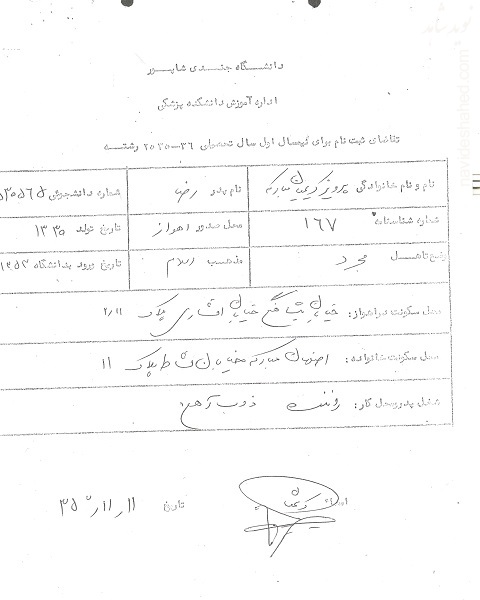 دانشگاه جندی شاپور
اداره آموزش دانشکده پزشکی
تقاضای ثبت نام برای نیمسال اول سال تحصیلی ۳۶-۲۵۳۵ رشته
نام و نام خانوادگی پرویز کریمیان مبارکه نام پدر رضا شماره دانشجوئی
شماره شناسنامه ۱۶۷ محل صدور اهواز تاریخ تولد ۱۳۳۵
وضع تاهل مجرد مذهب اسلام تاریخ ورود بدانشگاه ۱۳۵۳
محل سکونت در اهواز: خیابان خیابان انشاری پلاک ۲/۱۱
محل سکونت خانواده: اصفهان مبارکه خیابان نشاط پلاک ۱۱
شغل پدر و محل کار: راننده ذوب آهن
امضاء تاریخ ۳۵/۱۱/۱۱